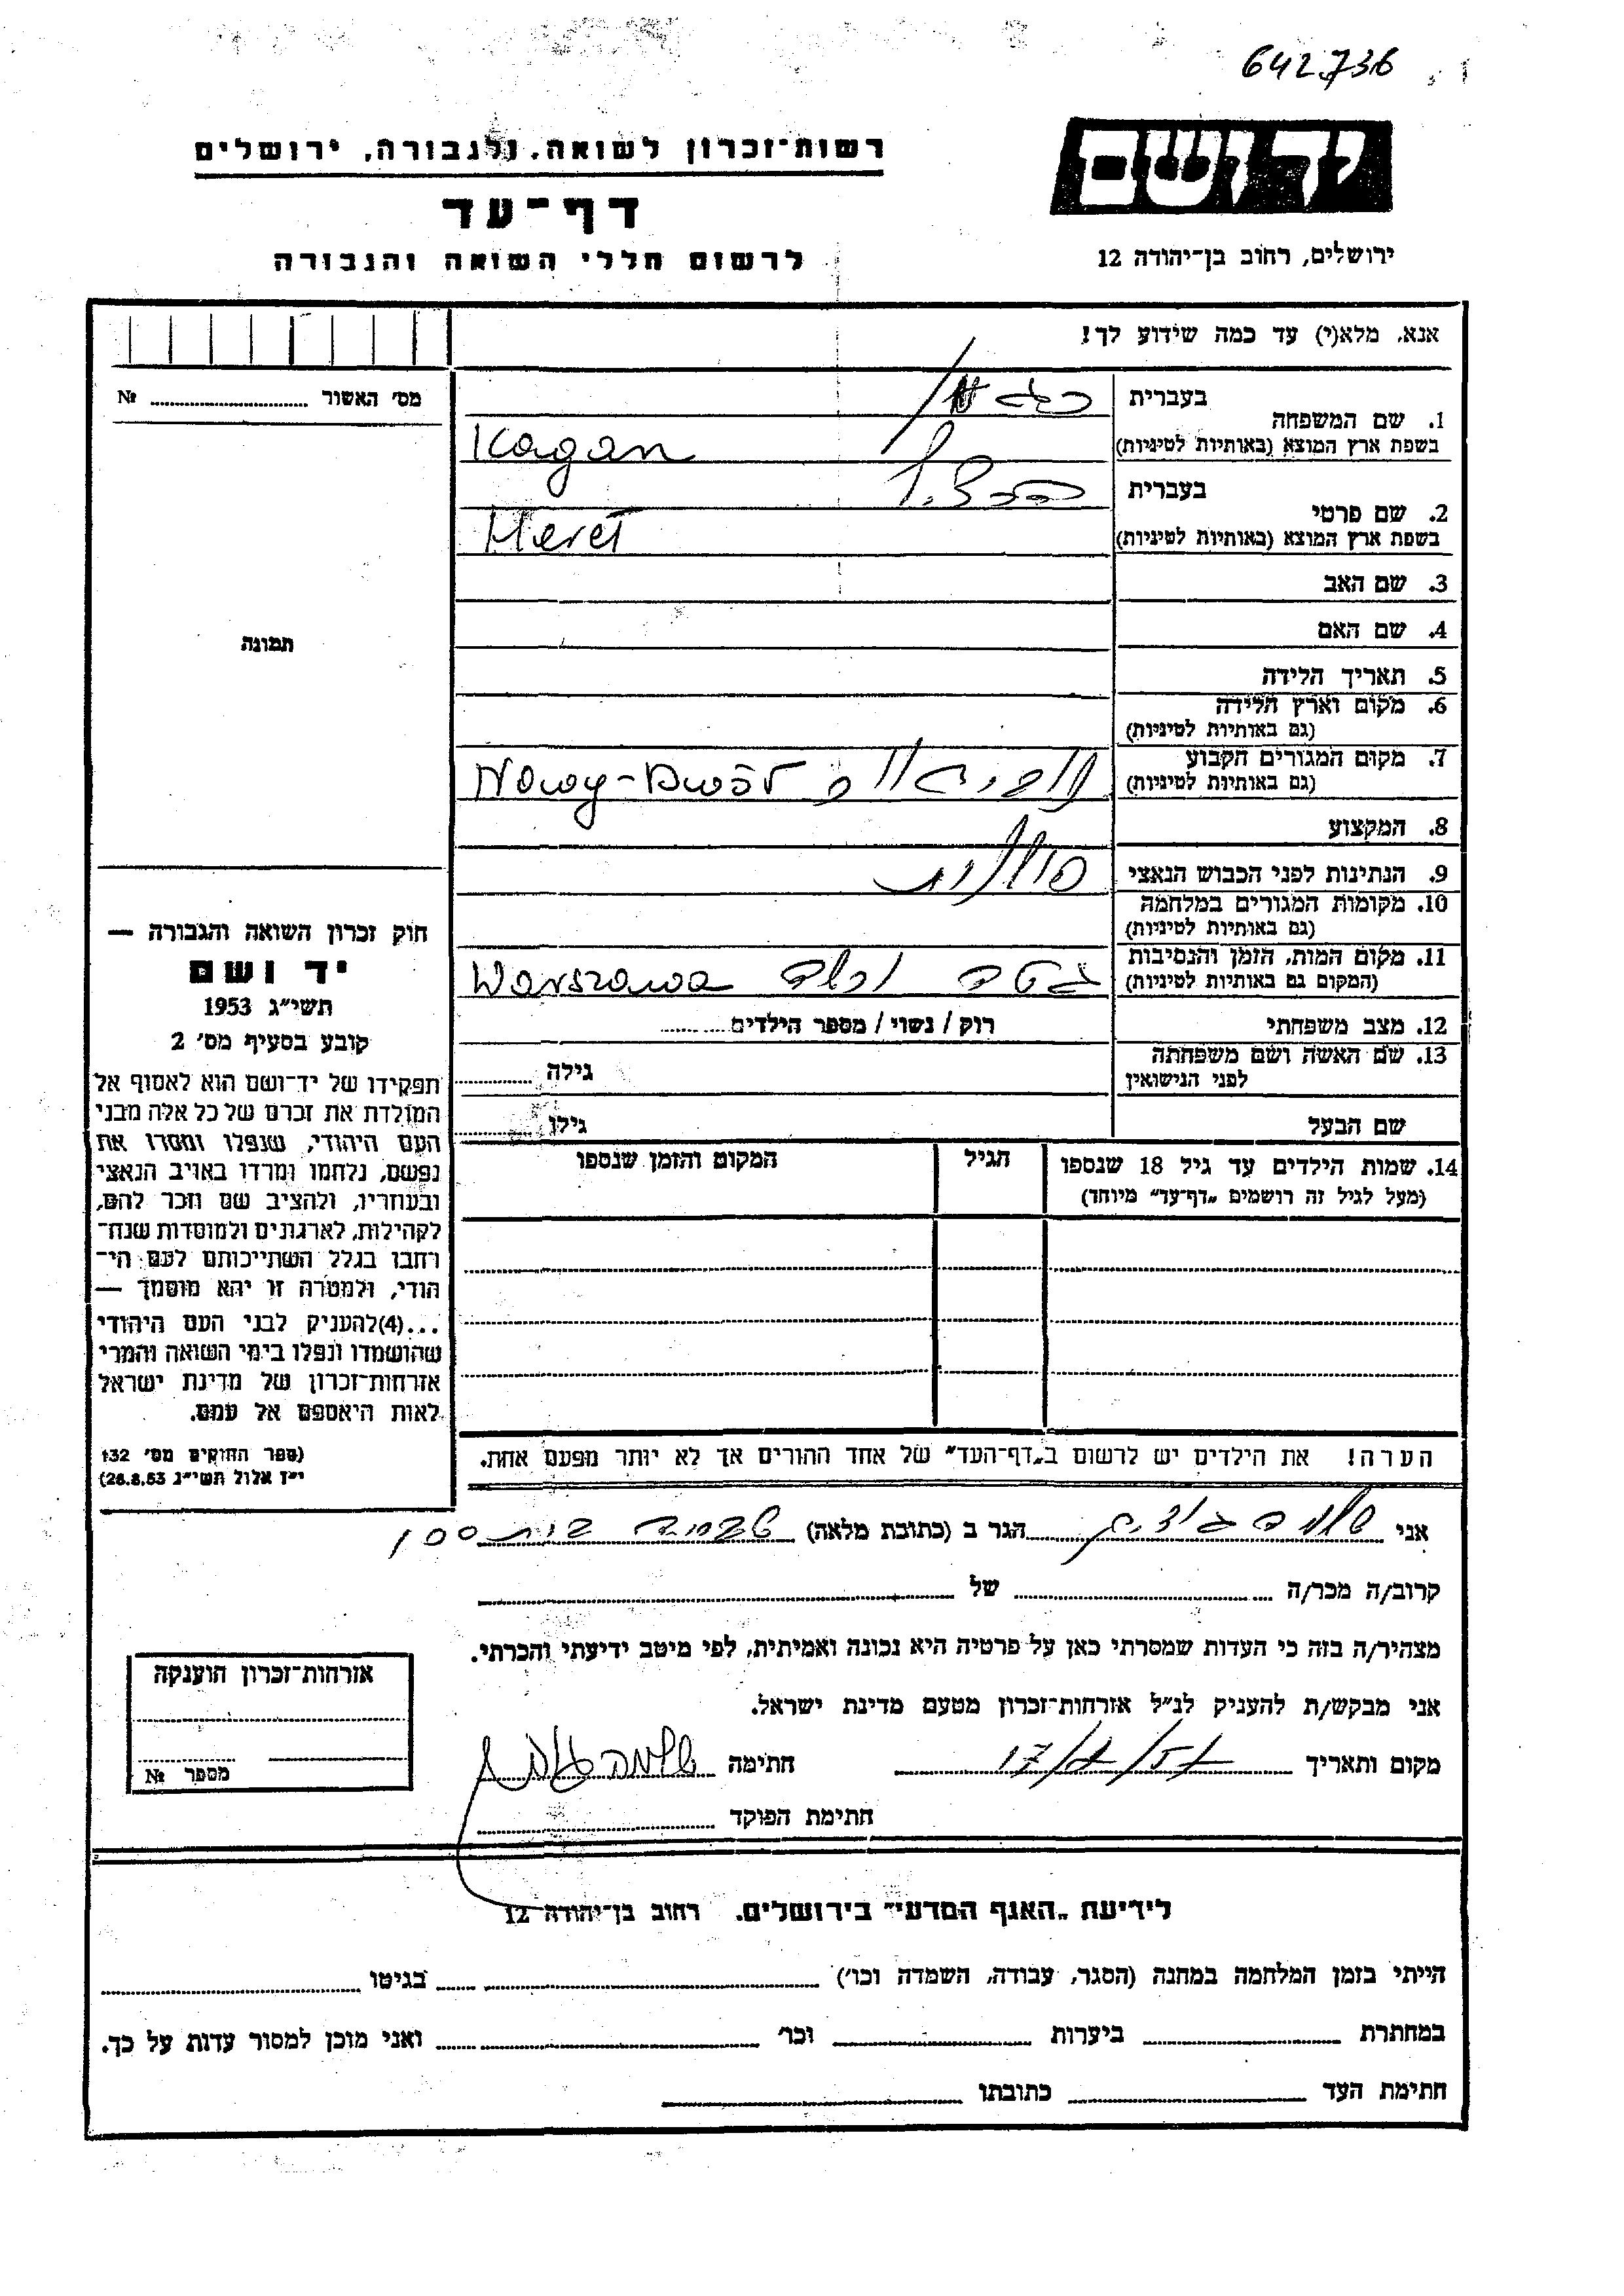 642.736
רשות־זכרון לשואה ולגבורה, ירושלים
יד ושם
דף־עד
לרשום חללי השואה והגבורה
ירושלים, רחוב בן־יהודה 12
אנא, מלא(י) עד כמה שידוע לך!
מס' האשור № 
1. שם המשפחה
בעברית
בשפת ארץ המוצא (באותיות לטיניות) Kagan
2. שם פרטי
בעברית
בשפת ארץ המוצא (באותיות לטיניות)
3. שם האב
4. שם האם
תמונה
5. תאריך הלידה
6. מקום וארץ הלידה
(גם באותיות לטיניות)
7. מקום המגורים הקבוע
(גם באותיות לטיניות) Nowy-Dwór
8. המקצוע
9. הנתינות לפני הכבוש הנאצי פולנית
10. מקומות המגורים במלחמה
(גם באותיות לטיניות)
11. מקום המות, הזמן והנסיבות
(המקום גם באותיות לטיניות) Warszawa
12. מצב משפחתי רוק / נשוי / מספר הילדים
13. שם האשה ושם משפחתה
לפני הנישואין גילה
שם הבעל גילו
14. שמות הילדים עד גיל 18 שנספו
(מעל לגיל זה רושמים "דף־עד" מיוחד)
הגיל
המקום והזמן שנספו
חוק זכרון השואה והגבורה —
יד ושם
תשי"ג 1953
קובע בסעיף מס' 2
תפקידו של יד־ושם הוא לאסוף אל
המולדת את זכרם של כל אלה מבני
העם היהודי, שנפלו ומסרו את
נפשם, נלחמו ומרדו באויב הנאצי
ובעוזריו, ולהציב שם וזכר להם,
לקהילות, לארגונים ולמוסדות שנח־
רחבו בגלל השתייכותם לעם הי־
הודי, ולמטרה זו יהא מוסמך —
...(4)להעניק לבני העם היהודי
שהושמדו ונפלו בימי השואה והמרי
אזרחות־זכרון של מדינת ישראל
לאות היאספם אל עמם.
(ספר החוקים מס' 132
י"ז אלול תשי"ג 28.8.53)
הערה! את הילדים יש לרשום ב"דף־העד" של אחד ההורים אך לא יותר מפעם אחת.
אני הגר ב (כתובת מלאה)
קרוב/ה מכר/ה של
מצהיר/ה בזה כי העדות שמסרתי כאן על פרטיה היא נכונה ואמיתית, לפי מיטב ידיעתי והכרתי.
אני מבקש/ת להעניק לנ"ל אזרחות־זכרון מטעם מדינת ישראל.
מקום ותאריך חתימה
חתימת הפוקד
אזרחות־זכרון הוענקה
מספר №
לידיעת "האגף המדעי" בירושלים. רחוב בן־יהודה 12
הייתי בזמן המלחמה במחנה (הסגר, עבודה, השמדה וכו') בגיטו
במחתרת ביערות וכו' ואני מוכן למסור עדות על כך.
חתימת העד כתובתו